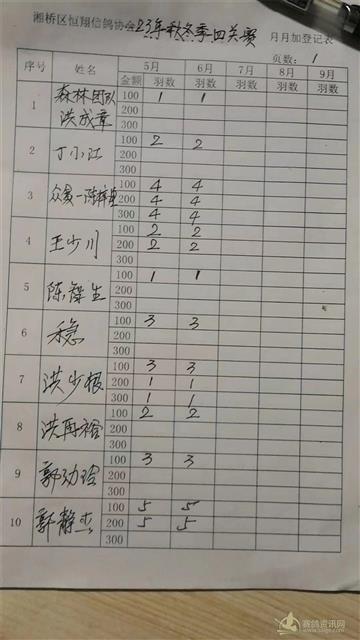 湘桥区恒翔信鸽协会23年秋冬季四关赛 月月加登记表
页数: 1
序号 姓名 5月 6月 7月 8月 9月
金额 羽数 羽数 羽数 羽数 羽数
1 森林团队 洪成章 100 1 1
200
300
2 丁小江 100 2 2
200
300
3 100 4 4
200 4 4
300 4 4
4 王少川 100 2 2
200 2 2
300
5 100 1 1
200
300
6 稳 100 3 3
200
300
7 洪少根 100 3 3
200 1 1
300 1 1
8 洪再裕 100 2 2
200
300
9 100 3 3
200
300
10 郭静杰 100 5 5
200 5 5
300
赛鸽资讯网